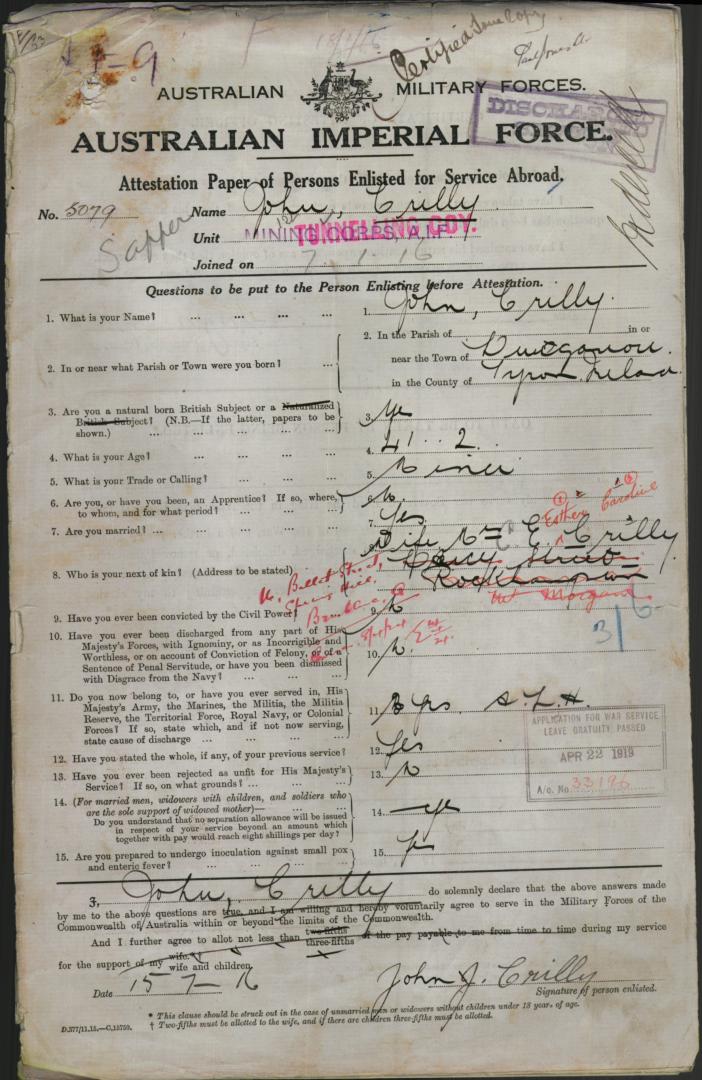 Certified True Copy
AUSTRALIAN MILITARY FORCES.
DISCHARGED
AUSTRALIAN IMPERIAL FORCE.
Attestation Paper of Persons Enlisted for Service Abroad.
No. 5079 Name John, Crilly
Sapper
Unit MINING CORPS, A.I.F. TUNNELLING COY.
Joined on 7. 1. 16
Questions to be put to the Person Enlisting before Attestation.
1. What is your Name? ... ... ... 1. John, Crilly.
2. In or near what Parish or Town were you born? ... 2. In the Parish of in or
near the Town of
in the County of Tyron
3. Are you a natural born British Subject or a Naturalized British Subject? (N.B.—If the latter, papers to be shown.) ... ... ... ... 3. Yes
4. What is your Age? ... ... ... 4. 41 .. 2.
5. What is your Trade or Calling? ... ... ... 5. Miner
6. Are you, or have you been, an Apprentice? If so, where, to whom, and for what period? ... ... ... 6. No.
7. Are you married? ... ... ... ... 7. Yes
Esther Caroline
8. Who is your next of kin? (Address to be stated) 8. Wife Mrs E. Crilly
Street
Rockhampton
Mt Morgan
9. Have you ever been convicted by the Civil Power? 9. No
316
10. Have you ever been discharged from any part of His Majesty's Forces, with Ignominy, or as Incorrigible and Worthless, or on account of Conviction of Felony, or of a Sentence of Penal Servitude, or have you been dismissed with Disgrace from the Navy? ... ... ... 10. No.
11. Do you now belong to, or have you ever served in, His Majesty's Army, the Marines, the Militia, the Militia Reserve, the Territorial Force, Royal Navy, or Colonial Forces? If so, state which, and if not now serving, state cause of discharge ... ... ... ... 11. 3 yrs A.L.H.
APPLICATION FOR WAR SERVICE
LEAVE GRATUITY PASSED
APR 22 1919
A/c. No. 33196
12. Have you stated the whole, if any, of your previous service? 12. Yes
13. Have you ever been rejected as unfit for His Majesty's Service? If so, on what grounds? ... ... ... 13. No
14. (For married men, widowers with children, and soldiers who are the sole support of widowed mother)— ... ...
Do you understand that no separation allowance will be issued in respect of your service beyond an amount which together with pay would reach eight shillings per day? ... 14. yes
15. Are you prepared to undergo inoculation against small pox and enteric fever? ... ... ... ... 15. yes
I, John, Crilly do solemnly declare that the above answers made
by me to the above questions are true, and I am willing and hereby voluntarily agree to serve in the Military Forces of the
Commonwealth of Australia within or beyond the limits of the Commonwealth.
And I further agree to allot not less than two-fifths three-fifths of the pay payable to me from time to time during my service
for the support of my wife. wife and children.
Date 15 - 7 - 16 John J. Crilly
Signature of person enlisted.
* This clause should be struck out in the case of unmarried men or widowers without children under 18 year. of age.
† Two-fifths must be allotted to the wife, and if there are children three-fifths must be allotted.
D.377/11.15.—C.15759.